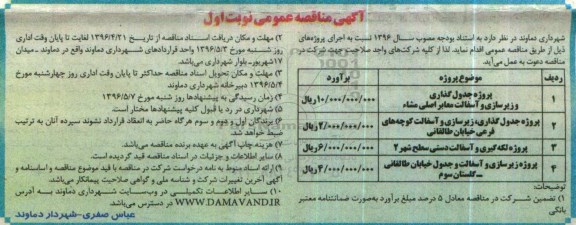 آگهی مناقصه عمومی نوبت اول
شهرداری دماوند در نظر دارد به استناد بودجه مصوب سال ۱۳۹۶ نسبت به اجرای پروژه‌های
ذیل از طریق مناقصه عمومی اقدام نماید. لذا از کلیه شرکت‌های واجد صلاحیت جهت شرکت در
مناقصه دعوت به عمل می‌آید.
ردیف موضوع پروژه برآورد
۱ پروژه جدول گذاری و زیرسازی و آسفالت معابر اصلی مشاء ۱۰/۰۰۰/۰۰۰/۰۰۰ریال
۲ پروژه جدول گذاری، زیرسازی و آسفالت کوچه‌های فرعی خیابان طالقانی ۲/۰۰۰/۰۰۰/۰۰۰ریال
۳ پروژه لکه گیری و آسفالت دستی سطح شهر ۲ ۶/۰۰۰/۰۰۰/۰۰۰ریال
۴ پروژه زیرسازی و آسفالت و جدول خیابان طالقانی ـ گلستان سوم ۴/۰۰۰/۰۰۰/۰۰۰ریال
توضیحات:
۱) تضمین شرکت در مناقصه معادل ۵ درصد مبلغ برآورد به‌صورت ضمانتنامه معتبر
بانکی
۲) مهلت و مکان دریافت اسناد مناقصه از تاریخ ۱۳۹۶/۴/۲۱ لغایت تا پایان وقت اداری
روز شنبه مورخ ۱۳۹۶/۵/۳ واحد قراردادهای شهرداری دماوند واقع در دماوند ـ میدان
۱۷شهریور ـ بلوار شهرداری می‌باشد.
۳) مهلت و مکان تحویل اسناد مناقصه حداکثر تا پایان وقت اداری روز چهارشنبه مورخ
۱۳۹۶/۵/۴ دبیرخانه شهرداری دماوند
۴) زمان رسیدگی به پیشنهادها روز شنبه مورخ ۱۳۹۶/۵/۷
۵) شهرداری در رد یا قبول کلیه پیشنهادها مختار است.
۶) برندگان اول و دوم و سوم هرگاه حاضر به انعقاد قرارداد نشوند سپرده آنان به ترتیب
ضبط خواهد شد.
۷) هزینه چاپ آگهی به عهده برنده مناقصه می‌باشد.
۸) سایر اطلاعات و جزئیات در اسناد مناقصه قید گردیده است.
۹) ارائه اسناد منوط به نامه درخواست شرکت در مناقصه با قید موضوع مناقصه و اساسنامه و
آگهی آخرین تغییرات شرکت و شناسه ملی و گواهی صلاحیت پیمانکار می‌باشد.
۱۰) سایر اطلاعات تکمیلی در وب‌سایت شهرداری دماوند به آدرس
WWW.DAMAVAND.IR در دسترس می‌باشد.
عباس صفری-شهردار دماوند